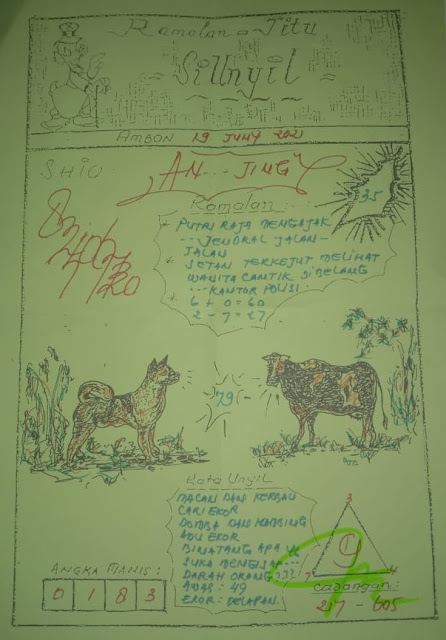 Ramalan = Jitu
= SiUnyil =
AMBON 19 JUNY 2021
SHIO
AN... JING
35
Ramalan:
* PUTRI RAJA MENGAJAK
... JENDRAL JALAN-
JALAN
* SETAN TERKEJUT MELIHAT
WANITA CANTIK DIBELANG
... KANTOR POLISI
* 6 + 0 = 60
2 - 7 = 27
79
Kata Unyil
MACAN DAN KERBAU
CARI EKOR
DOMBA DAN KAMBING
ADU EKOR
BINATANG APA YG
SUKA MENGISAP
DARAH ORANG
AWAS : 49
EKOR : DELAPAN.
3
9
7 4
ANGKA MANIS :
0 1 8 3
Cadangan :
217 - 605